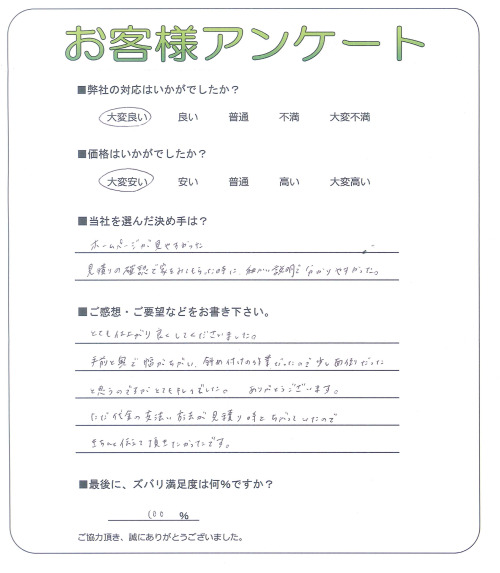 お客様アンケート
■弊社の対応はいかがでしたか？
大変良い 良い 普通 不満 大変不満
■価格はいかがでしたか？
大変安い 安い 普通 高い 大変高い
■当社を選んだ決め手は？
ホームページが見やすかった
見積りの確認で家をみてもらった時に細かい説明で分かりやすかった。
■ご感想・ご要望などをお書き下さい。
とても仕上がり良くしてくださいました。
手前と奥で幅がちがい、斜め付けの作業だったので少し面倒だった
と思うのですがとてもキレイでした。 ありがとうございます。
ただ代金の支払い方法が見積り時とちがっていたので
きちんと伝えて頂きたかったです。
■最後に、ズバリ満足度は何％ですか？
100 ％
ご協力頂き、誠にありがとうございました。